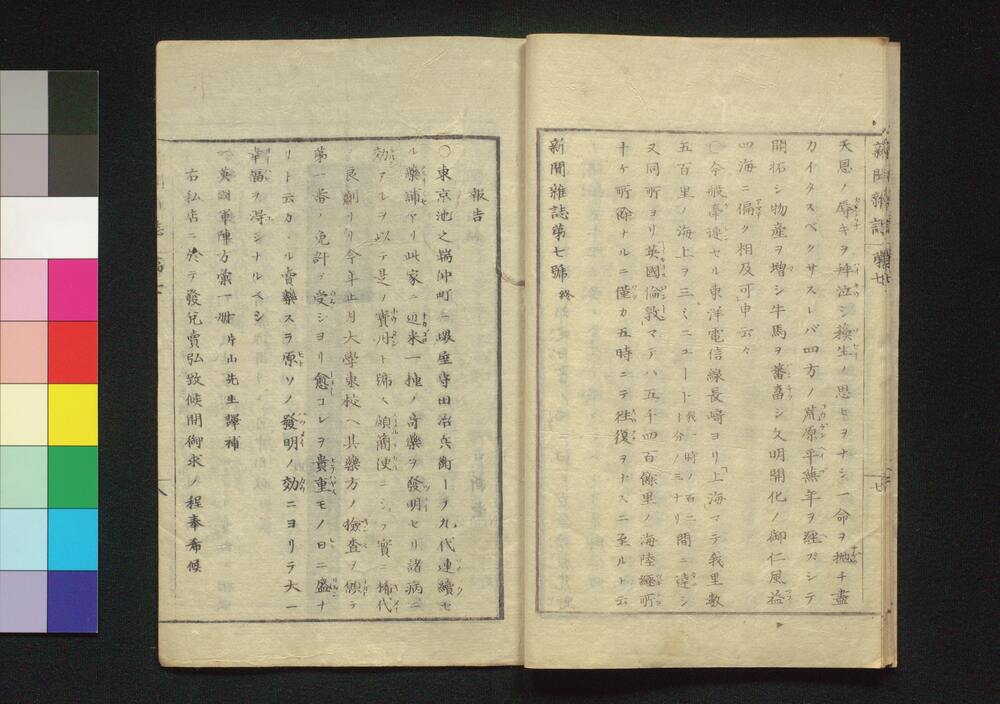 天恩ノ辱キヲ拝泣シ換生ノ思ヒヲナシ一命ヲ抛チ盡
カイタスベクサスレバ四方ノ荒原平蕪年ヲ経ズシテ
開拓シ物産ヲ増シ牛馬ヲ蕃畜シ文明開化ノ御仁風益
四海ニ偏ク相及可申云々
〇今般奉達セル東洋電信線長崎ヨリ上海マデ我里数
五百里ノ海上ヲ三ミニュート我一時ノ百二十分ノ三ナリ間ニ達シ
又同所ヨリ英國倫敦マテハ五千四百餘里ノ海陸継所
十ケ所除ナルニ僅カ五時ニテ往復ヲナスニ至ルト云
新聞雑誌第七號 終
報告
〇東京池之端仲町ニ環堂守田治兵衛ーヲ九代連續セ
ル藥舗アリ此家ニ近来一種ノ奇藥ヲ發明セリ諸病ニ
効アルヲ以テ是ノ寶丹ト號ス頗簡便ニシテ實ニ稀代
ノ良劑ナリ今年正月大學東校ヘ其藥方ノ撿査ヲ願テ
第一番ノ免許ヲ受シヨリ愈コレヲ貴重モノ日ニ盛ナ
リト云カヽル賣藥スラ原ソノ發明ノ効ニヨリテ大一
幸福ヲ得シナルベシ
英國軍陣方彙一冊 片山先生譯補
右私店ニ於テ發兌賣弘致候間御求ノ程奉希候
新聞雑誌